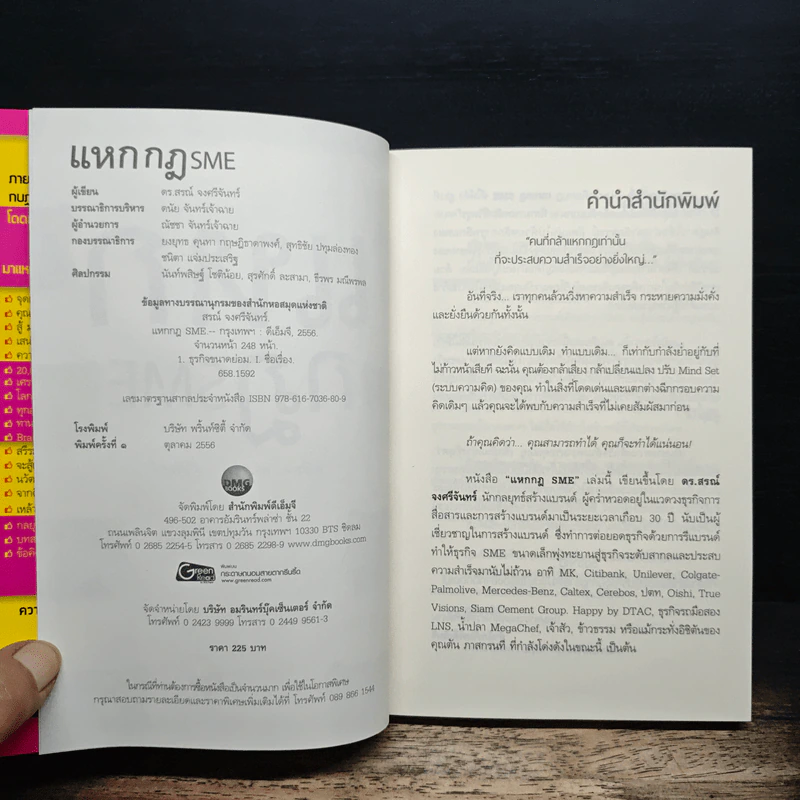 แหกกฎ SME
ผู้เขียน ดร.สรณ์ จงศรีจันทร์
บรรณาธิการบริหาร ดนัย จันทร์เจ้าฉาย
ผู้อำนวยการ ณัชชา จันทร์เจ้าฉาย
กองบรรณาธิการ ยงยุทธ คุนทา กฤษฎิธาดาพงศ์, สุทธิชัย ปทุมล่องทอง
ชนิดา แจ่มประเสริฐ
ศิลปกรรม นันท์พสิษฐ์ โชติน้อย, สุรศักดิ์ ละสามา, ธีรพร มณีพรหล
ข้อมูลทางบรรณานุกรมของสำนักหอสมุดแห่งชาติ
สรณ์ จงศรีจันทร์.
แหกกฎ SME.-- กรุงเทพฯ : ดีเอ็มจี, 2556.
จำนวนหน้า 248 หน้า.
1. ธุรกิจขนาดย่อม. I. ชื่อเรื่อง.
658.1592
เลขมาตรฐานสากลประจำหนังสือ ISBN 978-616-7036-80-9
โรงพิมพ์ บริษัท พริ้นท์ซิตี้ จำกัด
พิมพ์ครั้งที่ ๑ ตุลาคม 2556
DMG
BOOKS
จัดพิมพ์โดย สำนักพิมพ์ดีเอ็มจี
496-502 อาคารอัมรินทร์พลาซ่า ชั้น 22
ถนนเพลินจิต แขวงลุมพินี เขตปทุมวัน กรุงเทพฯ 10330 BTS ชิดลม
โทรศัพท์ 0 2685 2254-5 โทรสาร 0 2685 2298-9 www.dmgbooks.com
Green
Read
พิมพ์บน
กระดาษถนอมสายตากรีนรี้ด
www.greenread.com
จัดจำหน่ายโดย บริษัท อมรินทร์บุ๊คเซ็นเตอร์ จำกัด
โทรศัพท์ 0 2423 9999 โทรสาร 0 2449 9561-3
ราคา 225 บาท
ในกรณีที่ท่านต้องการซื้อหนังสือเป็นจำนวนมาก เพื่อใช้ในโอกาสพิเศษ
กรุณาสอบถามรายละเอียดและราคาพิเศษเพิ่มเติมได้ที่ โทรศัพท์ 089 866 1544
คำนำสำนักพิมพ์
"คนที่กล้าแหกกฎเท่านั้น
ที่จะประสบความสำเร็จอย่างยิ่งใหญ่..."
อันที่จริง... เราทุกคนล้วนวิ่งหาความสำเร็จ กระหายความมั่งคั่ง
และยั่งยืนด้วยกันทั้งนั้น
แต่หากยังคิดแบบเดิม ทำแบบเดิม... ก็เท่ากับกำลังย่ำอยู่กับที่
ไม่ก้าวหน้าเสียที ฉะนั้น คุณต้องกล้าเสี่ยง กล้าเปลี่ยนแปลง ปรับ Mind Set
(ระบบความคิด) ของคุณ ทำในสิ่งที่โดดเด่นและแตกต่างฉีกกรอบความ
คิดเดิมๆ แล้วคุณจะได้พบกับความสำเร็จที่ไม่เคยสัมผัสมาก่อน
ถ้าคุณคิดว่า... คุณสามารถทำได้ คุณก็จะทำได้แน่นอน!
หนังสือ "แหกกฎ SME" เล่มนี้ เขียนขึ้นโดย ดร.สรณ์
จงศรีจันทร์ นักกลยุทธ์สร้างแบรนด์ ผู้คร่ำหวอดอยู่ในแวดวงธุรกิจการ
สื่อสารและการสร้างแบรนด์มาเป็นระยะเวลาเกือบ 30 ปี นับเป็นผู้
เชี่ยวชาญในการสร้างแบรนด์ ซึ่งทำการต่อยอดธุรกิจด้วยการรีแบรนด์
ทำให้ธุรกิจ SME ขนาดเล็กพุ่งทะยานสู่ธุรกิจระดับสากลและประสบ
ความสำเร็จมานับไม่ถ้วน อาทิ MK, Citibank, Unilever, Colgate-
Palmolive, Mercedes-Benz, Caltex, Cerebos, ปตท, Oishi, True
Visions, Siam Cement Group. Happy by DTAC, ธุรกิจรถมือสอง
LNS, น้ำปลา MegaChef, เจ้าสัว, ข้าวธรรม หรือแม้กระทั่งอิชิตันของ
คุณตัน ภาสกรนที ที่กำลังโด่งดังในขณะนี้ เป็นต้น